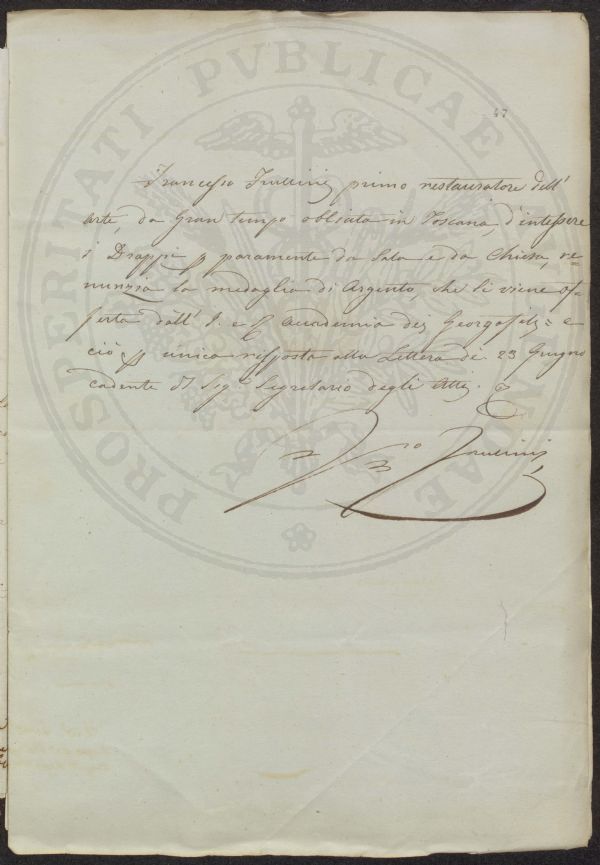 PROSPERITATI PVBLICAE AVGENDAE
47
Francesco Frullini primo restauratore dell'
arte, da gran tempo obliata in Toscana, d'intessere
i Drappi p paramente da Sala e da Chiesa, re=
nunzia la medaglia di Argento, che li viene of=
ferta dall' I. e R. Accademia dei Georgofili = e
ciò p unica risposta alla Lettera di 23 Giugno
cadente del Sigr Segretario degli Atti.
Frullini